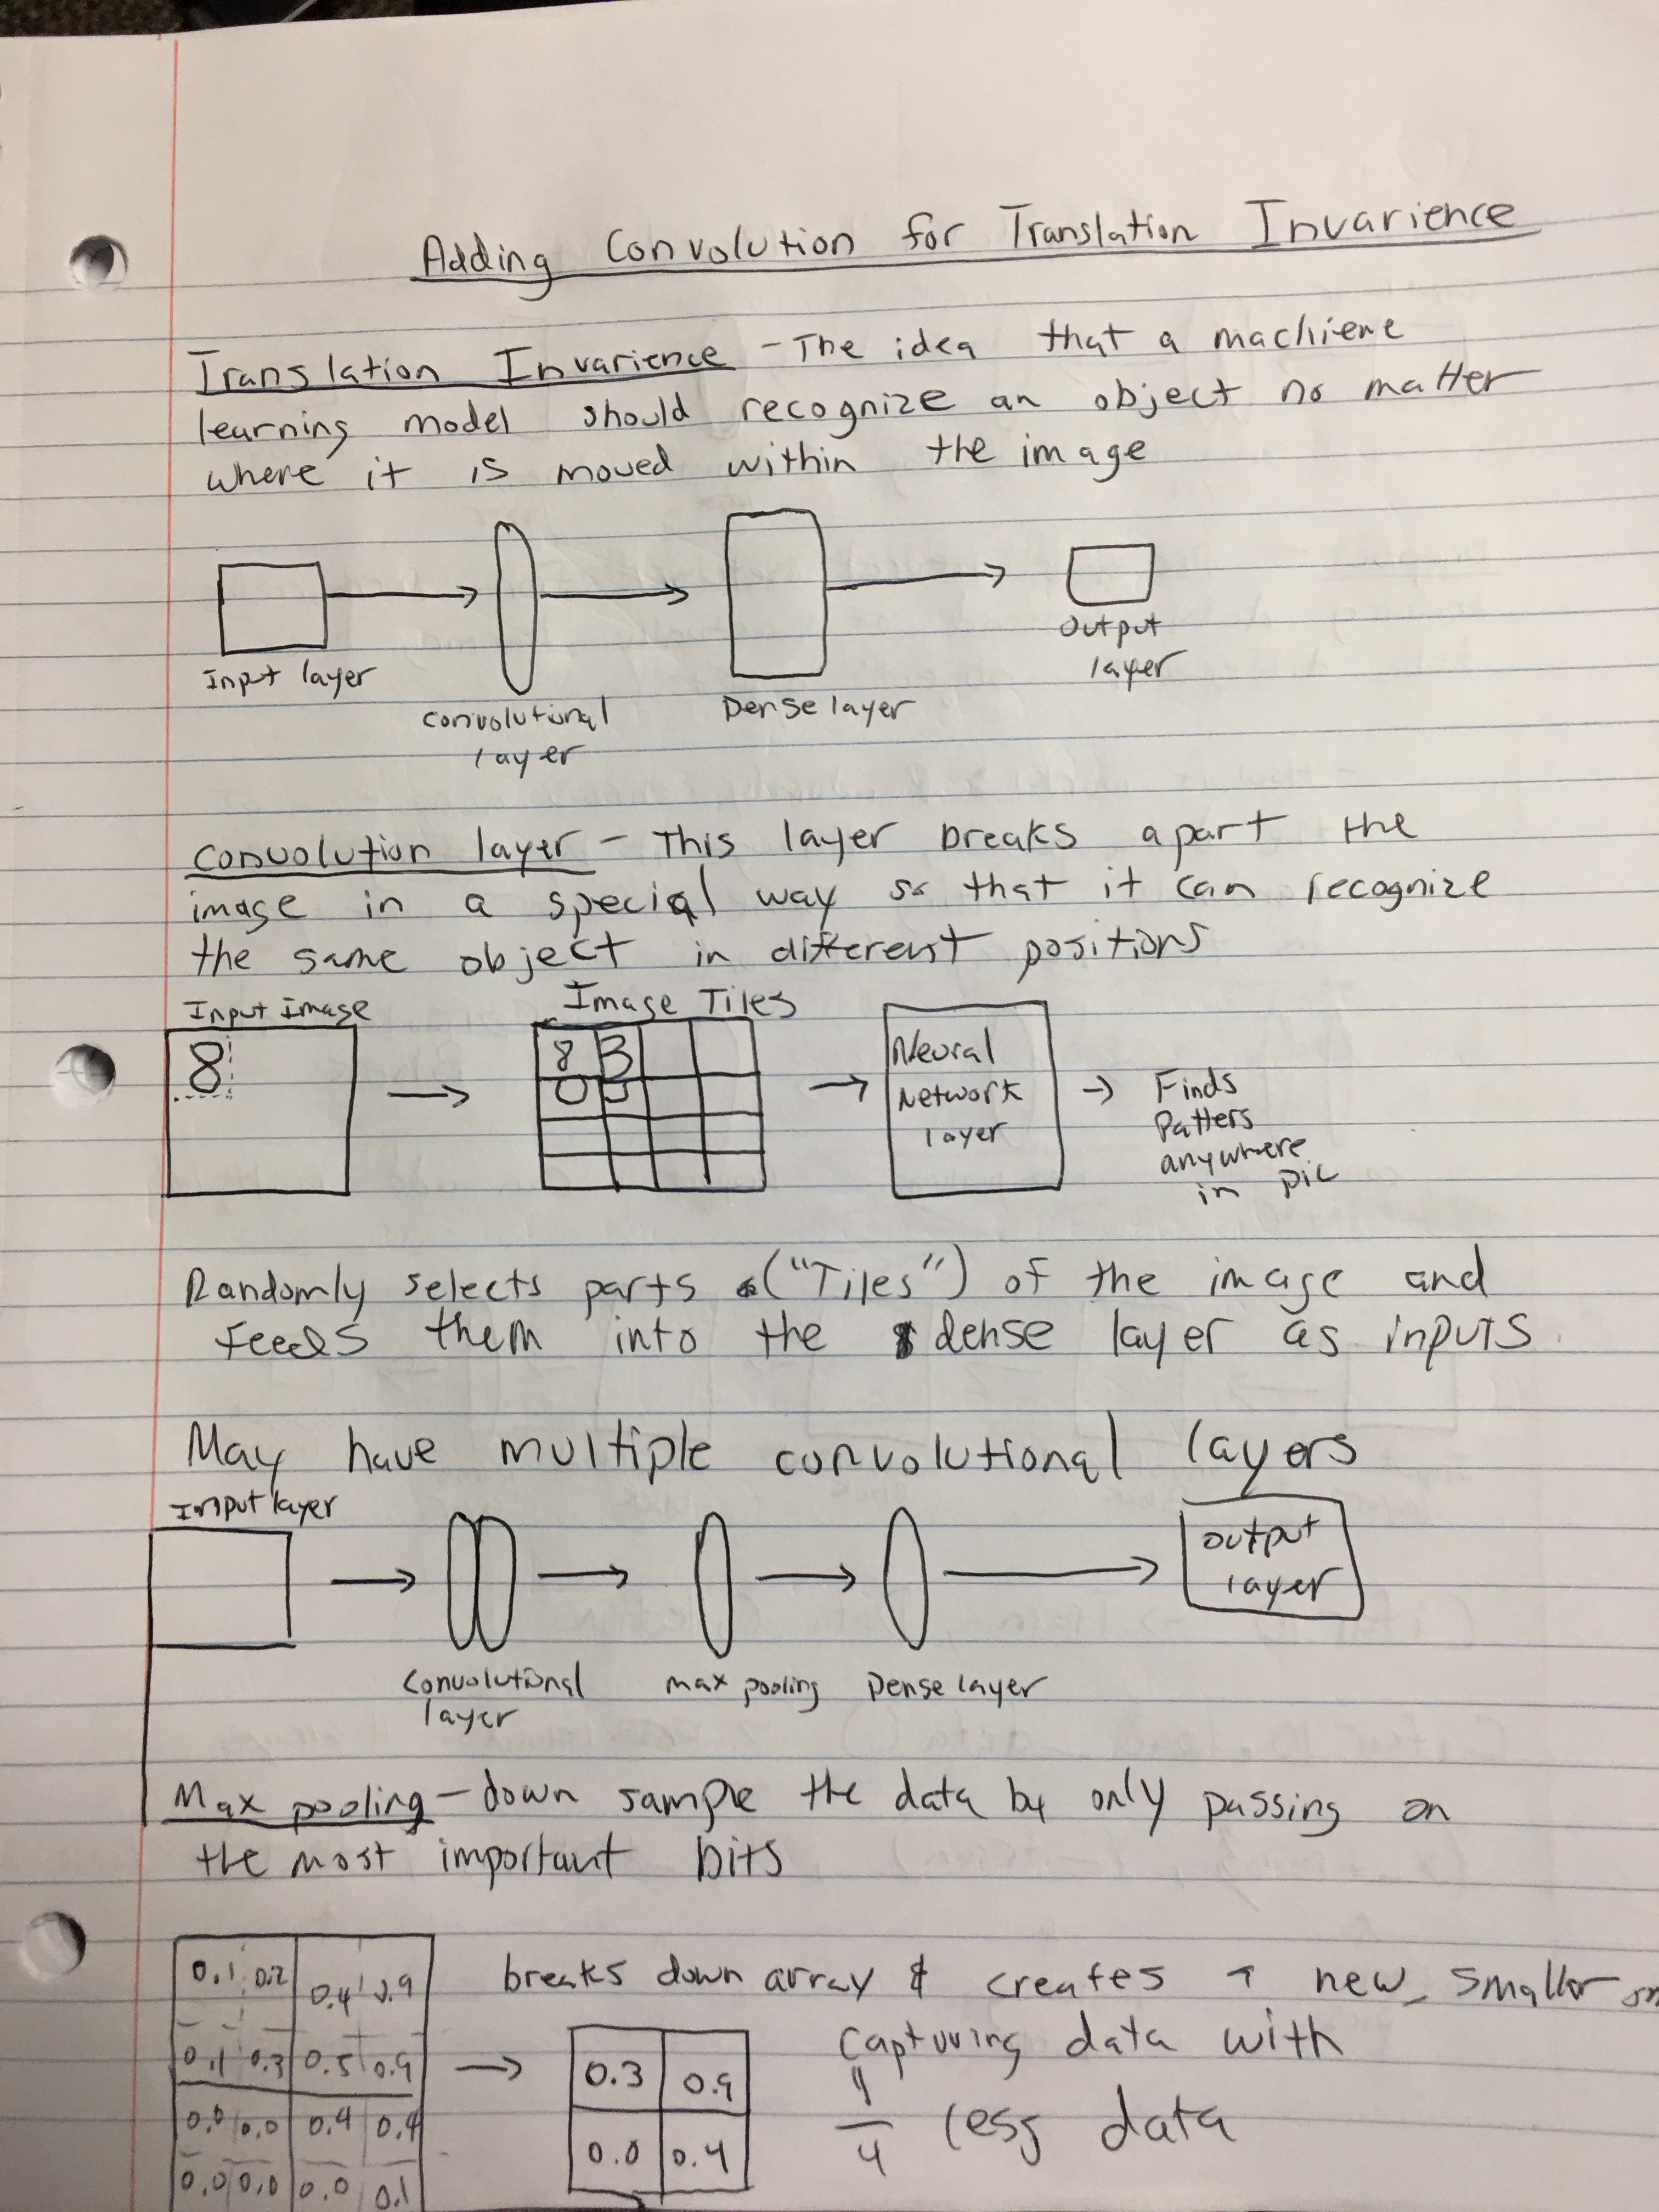 Adding Convolution for Translation Invarience
Translation Invarience - The idea that a machiene
learning model should recognize an object no matter
where it is moved within the image
Input layer
Convolutional
layer
Dense layer
Output
layer
Convolution layer - This layer breaks apart the
image in a special way so that it can recognize
the same object in different positions
Input Image
8
Image Tiles
8 3
Neural
Network
layer
Finds
Patters
anywhere
in pic
Randomly selects parts ("Tiles") of the image and
feeds them into the dense layer as inputs
May have multiple convolutional layers
Input layer
Convolutional
layer
Max pooling
Dense layer
output
layer
Max pooling - down sample the data by only passing on
the most important bits
0.1 0.2 0.4 0.9
0.1 0.3 0.5 0.9
0.0 0.0 0.4 0.4
0.0 0.0 0.0 0.1
0.3 0.9
0.0 0.4
breaks down array & creates a new smaller
Capturing data with
1/4 less data